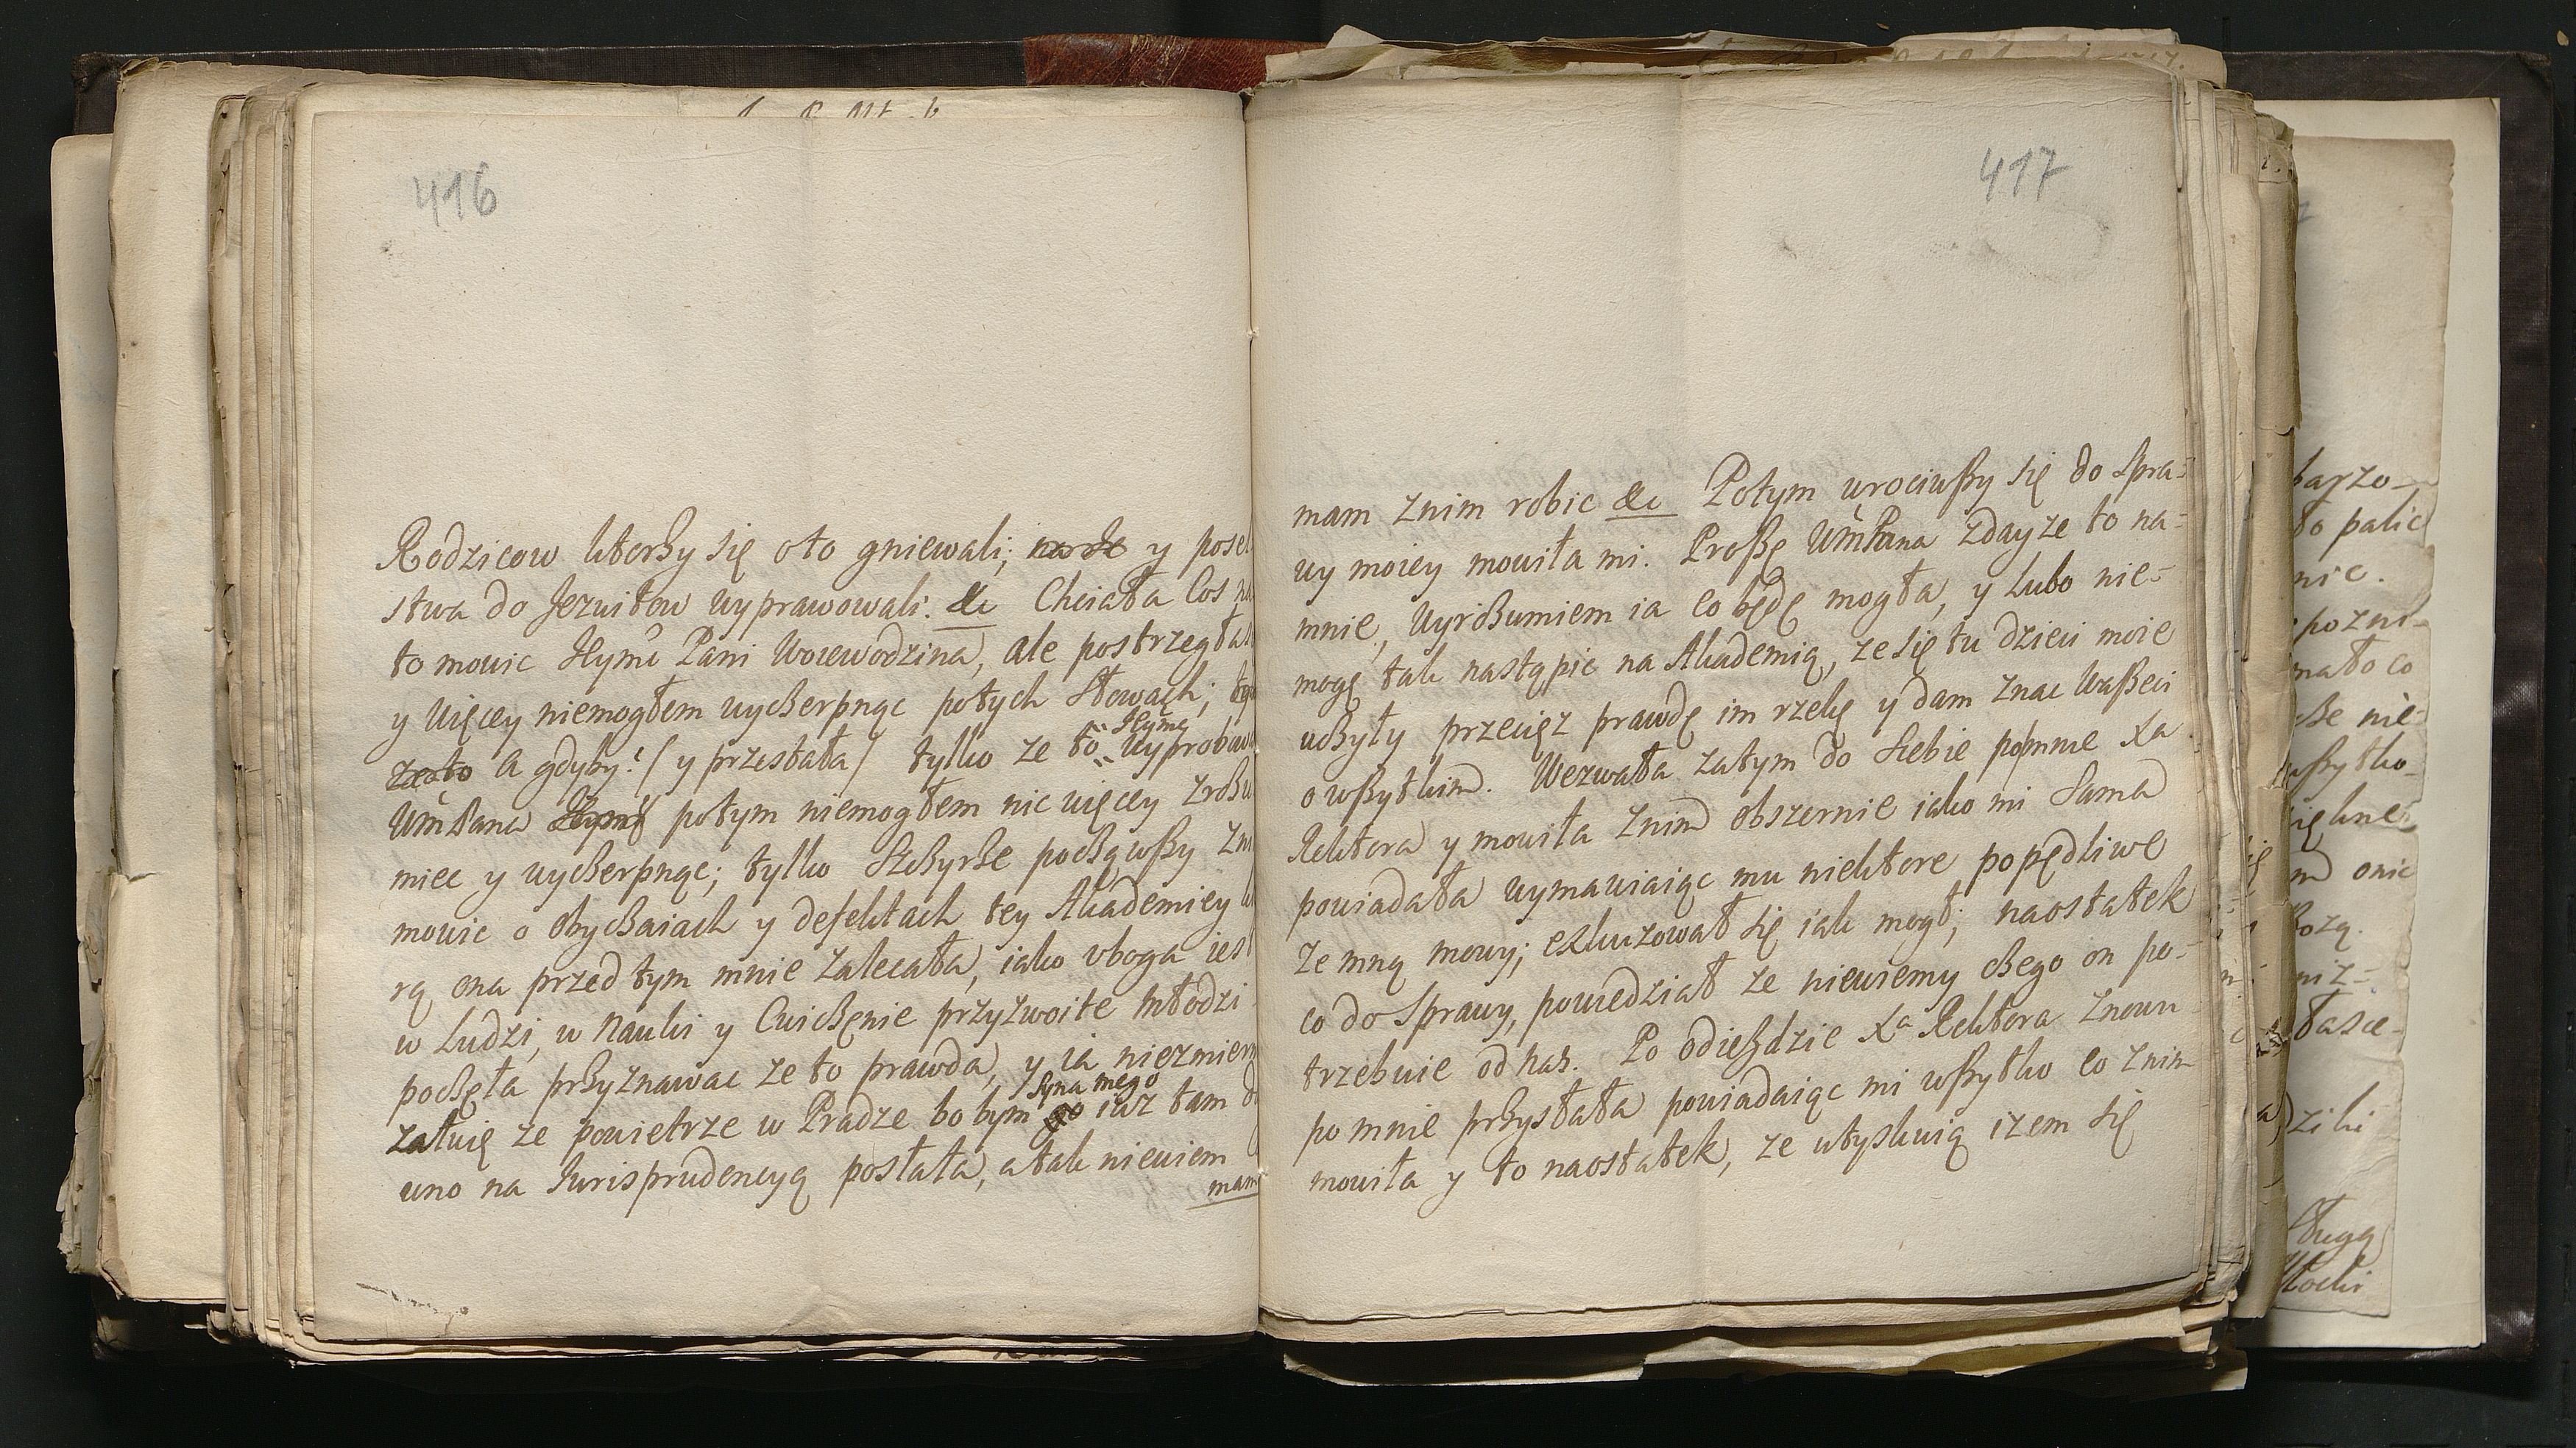 416
Rodzicow ktorzy się oto gniewali; y posel
stwa do Jezuitow wyprawowali. &c Chciała Cos
to mowic Jeymć Pani Woiewodzina, ale postrzegła
y więcey niemogłem wyczerpnąc potych słowach;
zeto A gdyby! / y przestała / tylko ze to
Jeymć
UmPana Jeymć potym niemogłem nic więcey zrozu
miec y wyczerpnąc; tylko Szczyrze począwszy
mowic o obyczaiach y defektach tey Akademiey
rą ona przed tym mnie zalecała, iako vboga iest
w ludzi, w nauki y Cwiczęnie przyzwoite młodzi
poczęła przyznawac ze to prawda, y ia niezmiern
załuię ze powietrze w Pradze bo bym go iuz tam
Syna mego
uno na Jurisprudencyą posłała, a tak niewiem
mam
417
mam znim robic &c Potym wrociwszy się do spra-
wy moiey mowiła mi. Proszę UmPana zdayze to na-
mnie, wyrozumiem ia co będę mogła, y lubo nie-
mogę tak nastąpic na Akademią, ze się tu dzieci moie
uczyły przecięz prawdę im rzekę y dam znac Waszeci
o wszytkim. Wezwała zatym do siebie po mnie Xa
Rektora y mowiła znim obszernie iako mi sama
powiadała wymawiaiąc mu niektore popędliwe
ze mną mowy; exkuzował się iak mogł; naostatek
co do sprawy, powiedział ze niewiemy czego on po-
trzebuie od nas. Po odieżdzie Xa Rektora znowu
po mnie przysłała powiadaiąc mi wszytko co znim
mowiła y to naostatek, ze utyskuią izem się
barzo-
to palic
nic.
pozni-
mało co
nie-
wszytko-
onic
Bozą.
niz-
łasce-
ziki
sługą